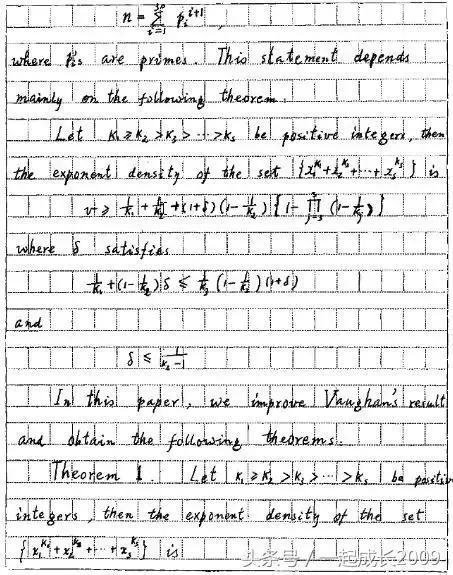 n = \sum_{i=1}^{30} p_i^{i+1} ,
where p_i's are primes. This statement depends
mainly on the following theorem.
Let k_1 ≥ k_2 > k_3 > ··· > k_s be positive integers, then
the exponent density of the set {x_1^{k_1} + x_2^{k_2} + ··· + x_s^{k_s}} is
where δ satisfies
\frac{1}{k_1} + (1 - \frac{1}{k_2}) δ ≤ \frac{1}{k_3} (1 - \frac{1}{k_2}) (1+δ)
and
In this paper, we improve Vaughan's result
and obtain the following theorems.
Theorem 1. Let k_1 ≥ k_2 > k_3 > ··· > k_s be positiv
integers, then the exponent density of the set
{x_1^{k_1} + x_2^{k_2} + ··· + x_s^{k_s}} is
头条号 / 一起成长2009